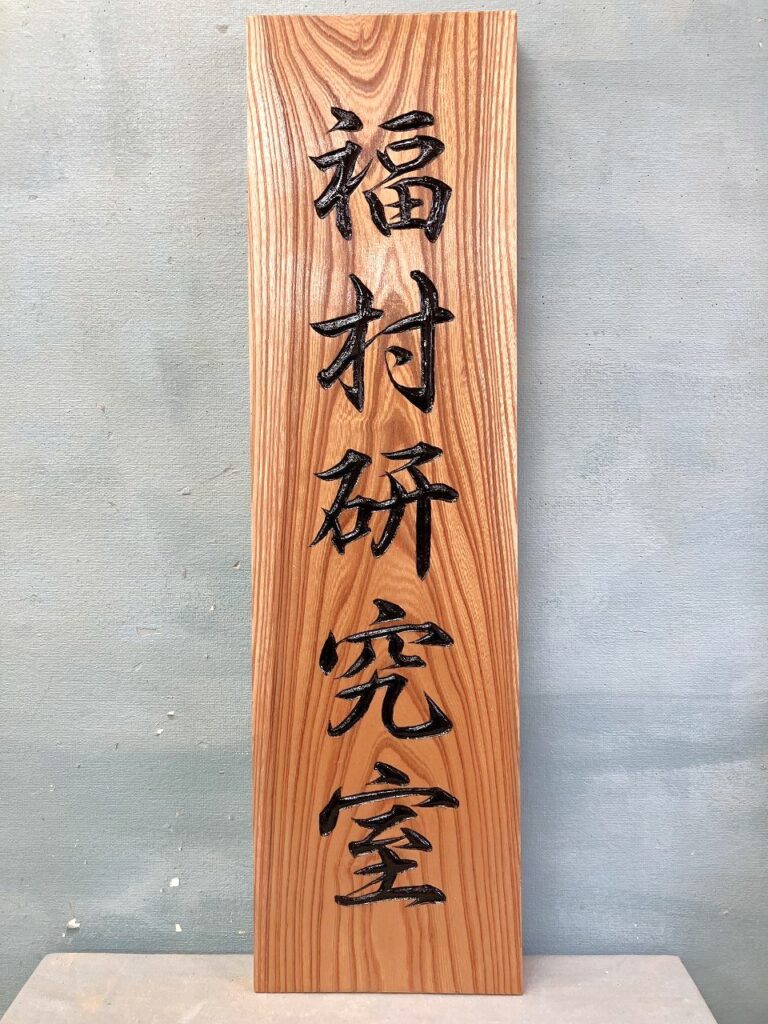 福村研究室